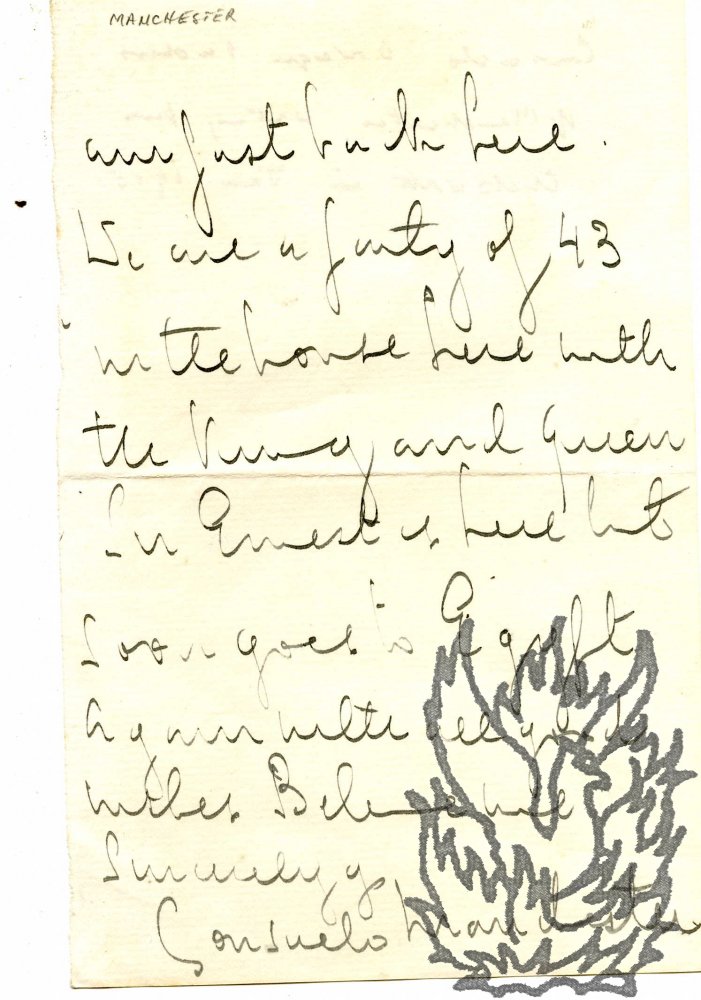 MANCHESTER
am just back here.
We are a party of 43
in the house here with
the King and Queen
Sir Ernest is here but
soon goes to Egypt
Again with all good
wishes Believe me
Sincerely yr
Consuelo Manchester